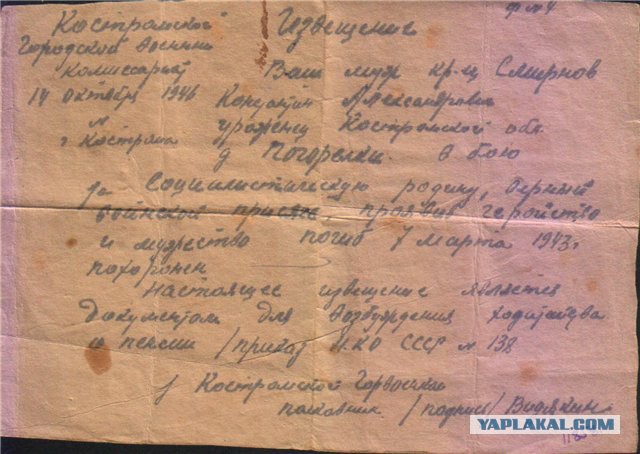 Костромской Извещение ф № 4
Городской военный
комиссариат Ваш муж кр-ец Смирнов
14 октября 1946 Констан­тин Александрович
№
г Кострома уроженец Костромской обл.
д Погорелки. в бою
за Социалистическую родину, верный
воинской присяге, проявив геройство
и мужество погиб 7 марта 1943г
похоронен
Настоящее извещение является
документом для возбуждения ходатайства
о пенсии /приказ НКО СССР № 138
Костромской Горвоенком
полковник /подпись/
YAPLAKAL.COM